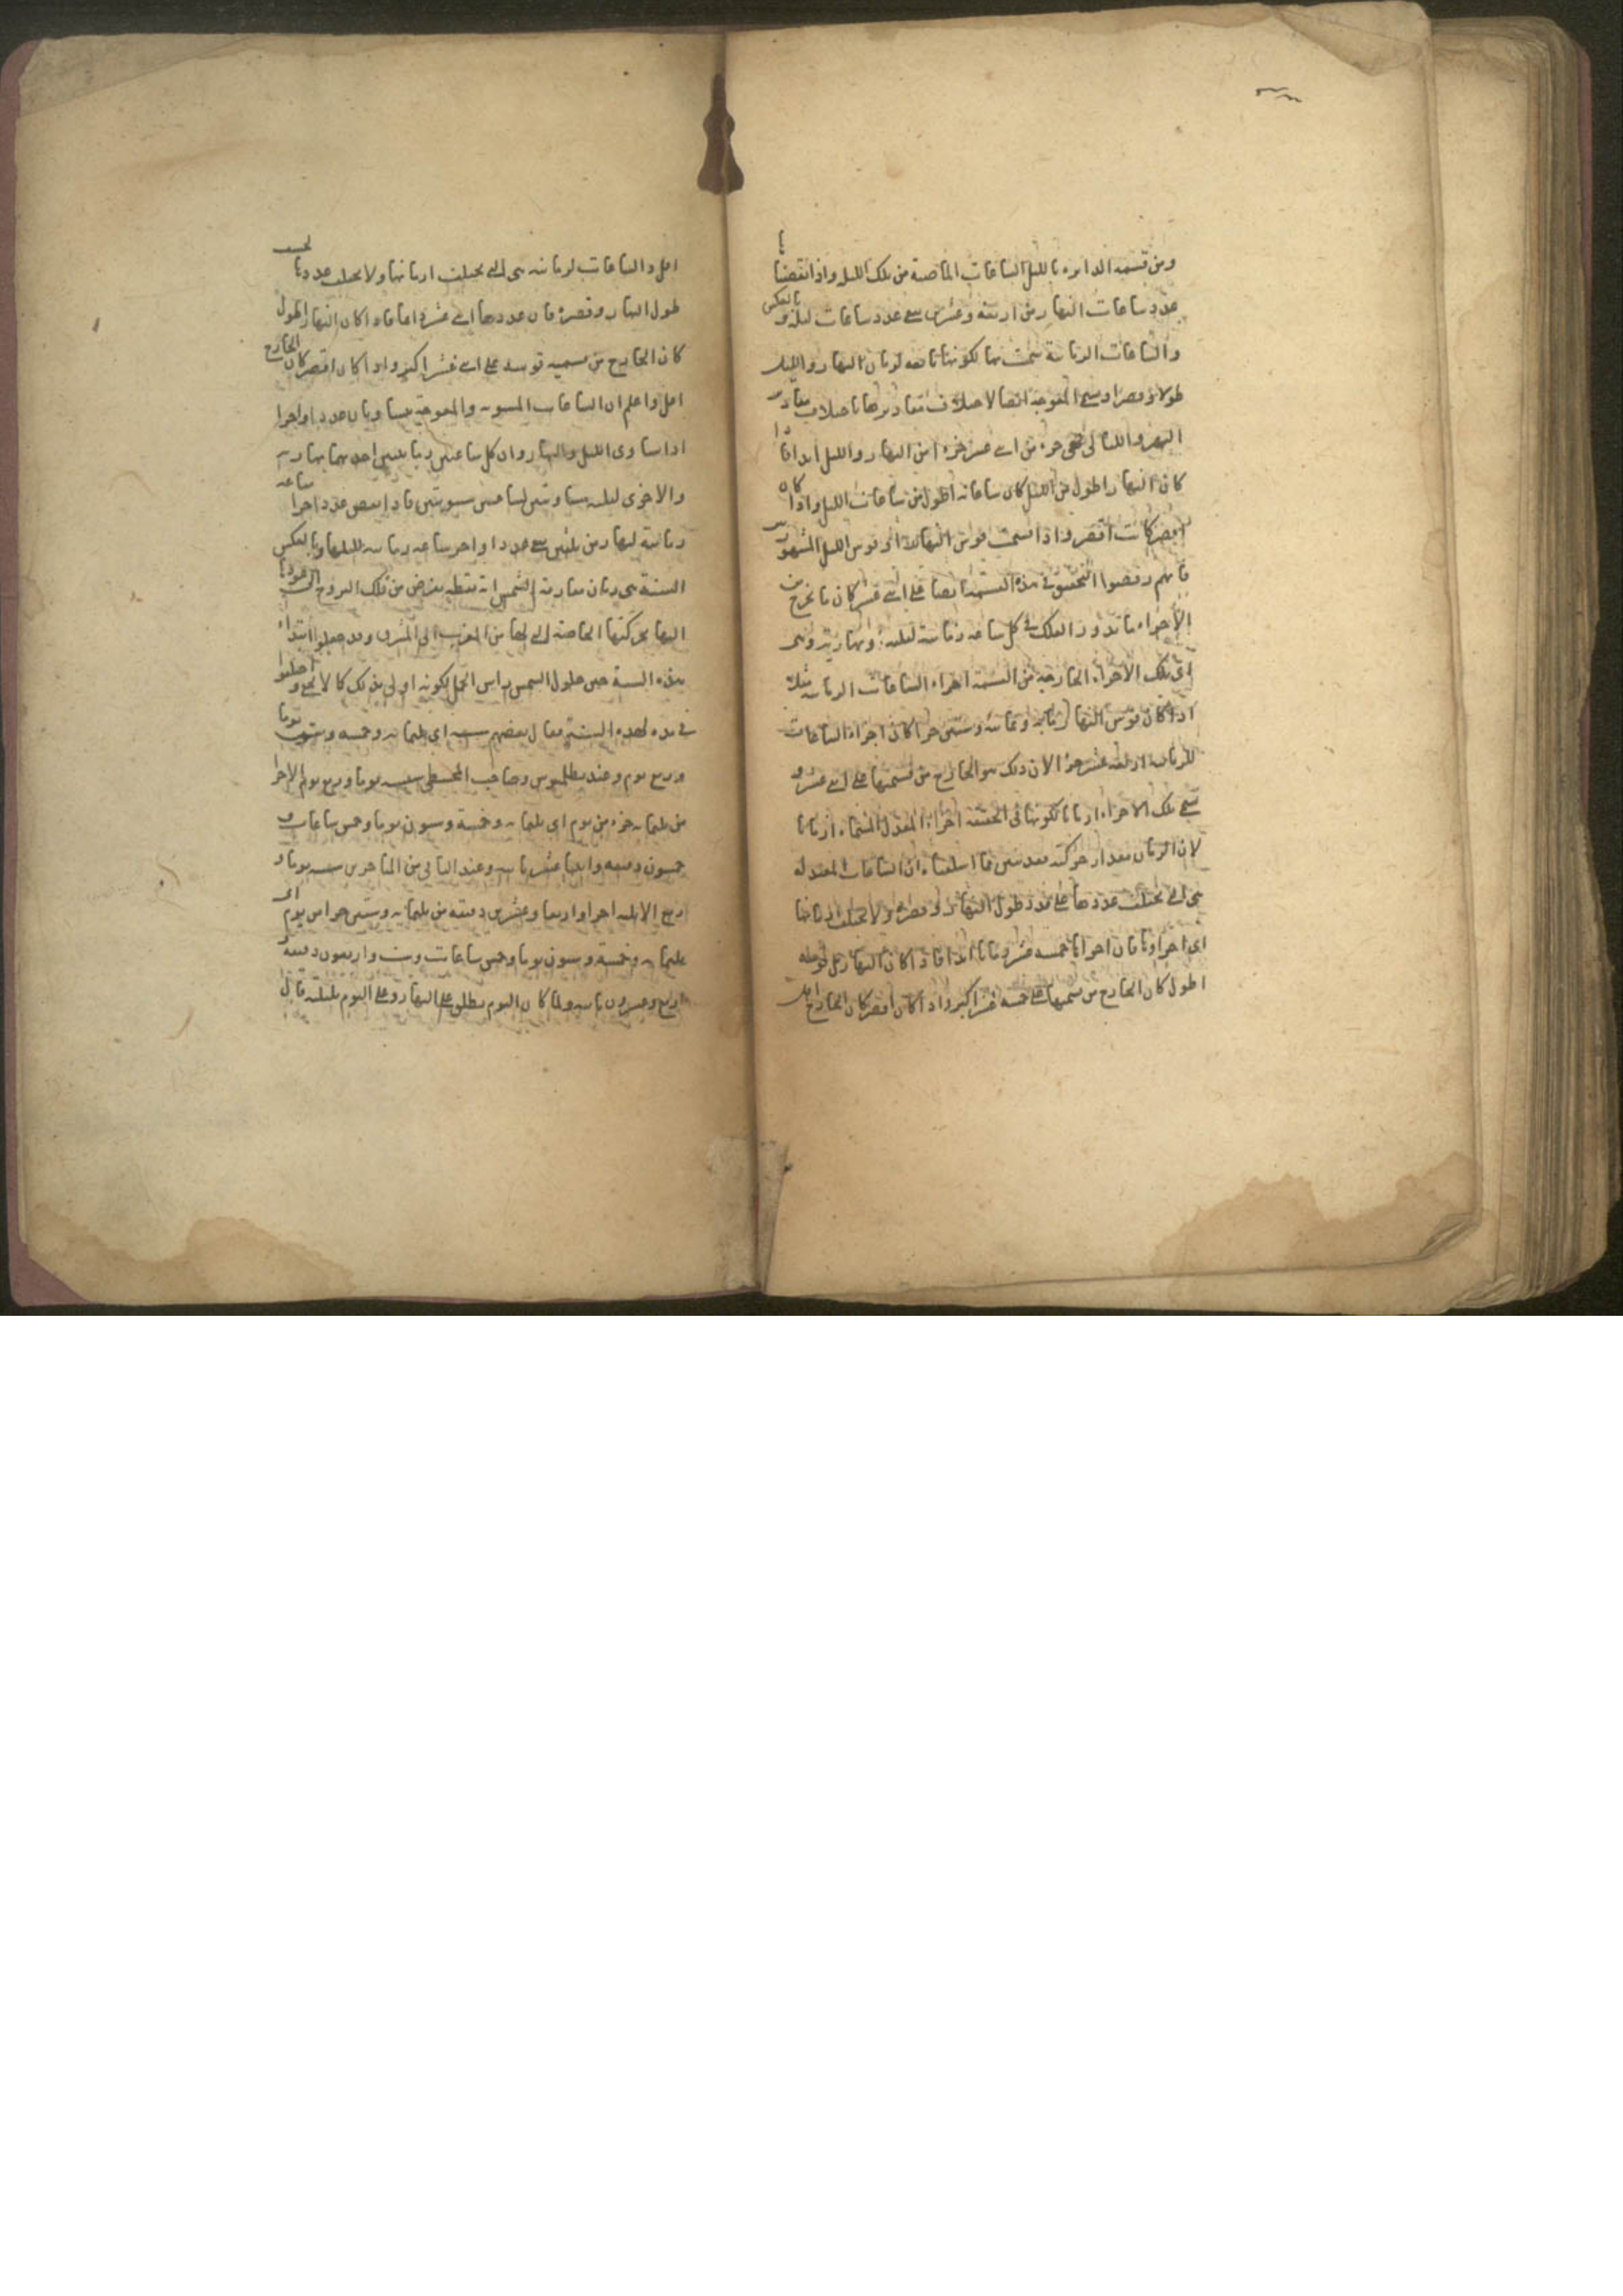 ومن قسمة الدائرة بالليل الساعات الماضية من تلك الليل واذا نقصنا
عدد ساعات النهار من اربعة وعشرين بقي عدد ساعات ليله وبالعكس
والساعات الزمانية سميت بها لكونها تابعة لزمان النهار والليل
طولا وقصرا وتسمى المعوجة ايضا لاختلاف مقاديرها باختلاف مقادير
النهر والليالي فهي جزء من اثنى عشر جزءا من النهار والليل ابدا فاذا
كان النهار اطول من الليل كان ساعاته اطول من ساعات الليل واذا كان
اقصر كانت اقصر واذا قسمت قوس النهار او قوس الليل المشهور
فانهم رفضوا التحقيق في هذه القسمة ايضا على اثنى عشر كان ما يخرج من
الاجزاء ما تدور الفلك في كل ساعة زمانية ليلية او نهارية وتسمى
اي تلك الاجزاء الخارجة من القسمة اجزاء الساعات الزمانية مثلا
اذا كان قوس النهار مائة وثمانية وستين جزءا كان اجزاء الساعات
الزمانية اربعة عشر جزءا لان ذلك هو الخارج من قسمتها على اثنى عشر و
تسمى تلك الاجزاء ازمانا لكونها في الحقيقة اجزاء المعدل المسماة ازمانا
لان الزمان مقدار حركته فقد تبين مما اسلفناه ان الساعات المعتدلة
هي التي تختلف عددها على قدر طول النهار وقصره ولا تختلف ازمانها
اي اجزاؤها فان اجزاءها خمسة عشر زمانا ابدا فاذا كان النهار
اطول كان الخارج من قسمتها على خمسة عشر اكبر واذا كان اقصر كان الخارج اقل
اقل والساعات الزمانية هي التي يختلف ازمانها ولا يختلف عددها بحسب
طول النهار وقصره فان عددها اثنى عشرة ابدا فاذا كان النهار اطول
كان الخارج من قسمة قوسه على اثنى عشر اكبر واذا كان اقصر كان الخارج
اقل واعلم ان الساعات المستوية والمعوجة يتساويان عددا واجزاء
اذا تساوى الليل والنهار وان كل ساعتين زمانيتين احديهما نهارية
والاخرى ليلية مساويتين لساعتين مستويتين فاذا نقص عدد اجزاء ساعة
زمانية لنهار من ثلثين بقي عدد اجزاء ساعة زمانية لليلها وبالعكس
السنة هي زمان مفارقة الشمس اية نقطة تفرض من فلك البروج الى عودها
اليها بحركتها الخاصة التي لها من المغرب الى المشرق وقد جعلوا ابتداء
هذه السنة حين حلول الشمس راس الحمل لكونه اولى بذلك كما لا يخفى واختلفوا
في مدة هذه السنة فقال بعضهم سسه اي ثلثمائة وخمسة وستون يوما
وربع يوم وعند بطلميوس صاحب المجسطي سسه يوما وربع يوم الا جزءا
من ثلثمائة جزء من يوم اي ثلثمائة وخمسة وستون يوما وخمس ساعات و
خمسون دقيقة واثنتا عشرة ثانية وعند التباني من المتاخرين سسه يوما و
ربع الا ثلثة اجزاء واربعا وعشرين دقيقة من ثلثمائة وستين جزءا من يوم اي
ثلثمائة وخمسة وستون يوما وخمس ساعات وست واربعون دقيقة
اربع وعشرون ثانية ولما كان اليوم يطلق على النهار وعلى اليوم بليلته قال